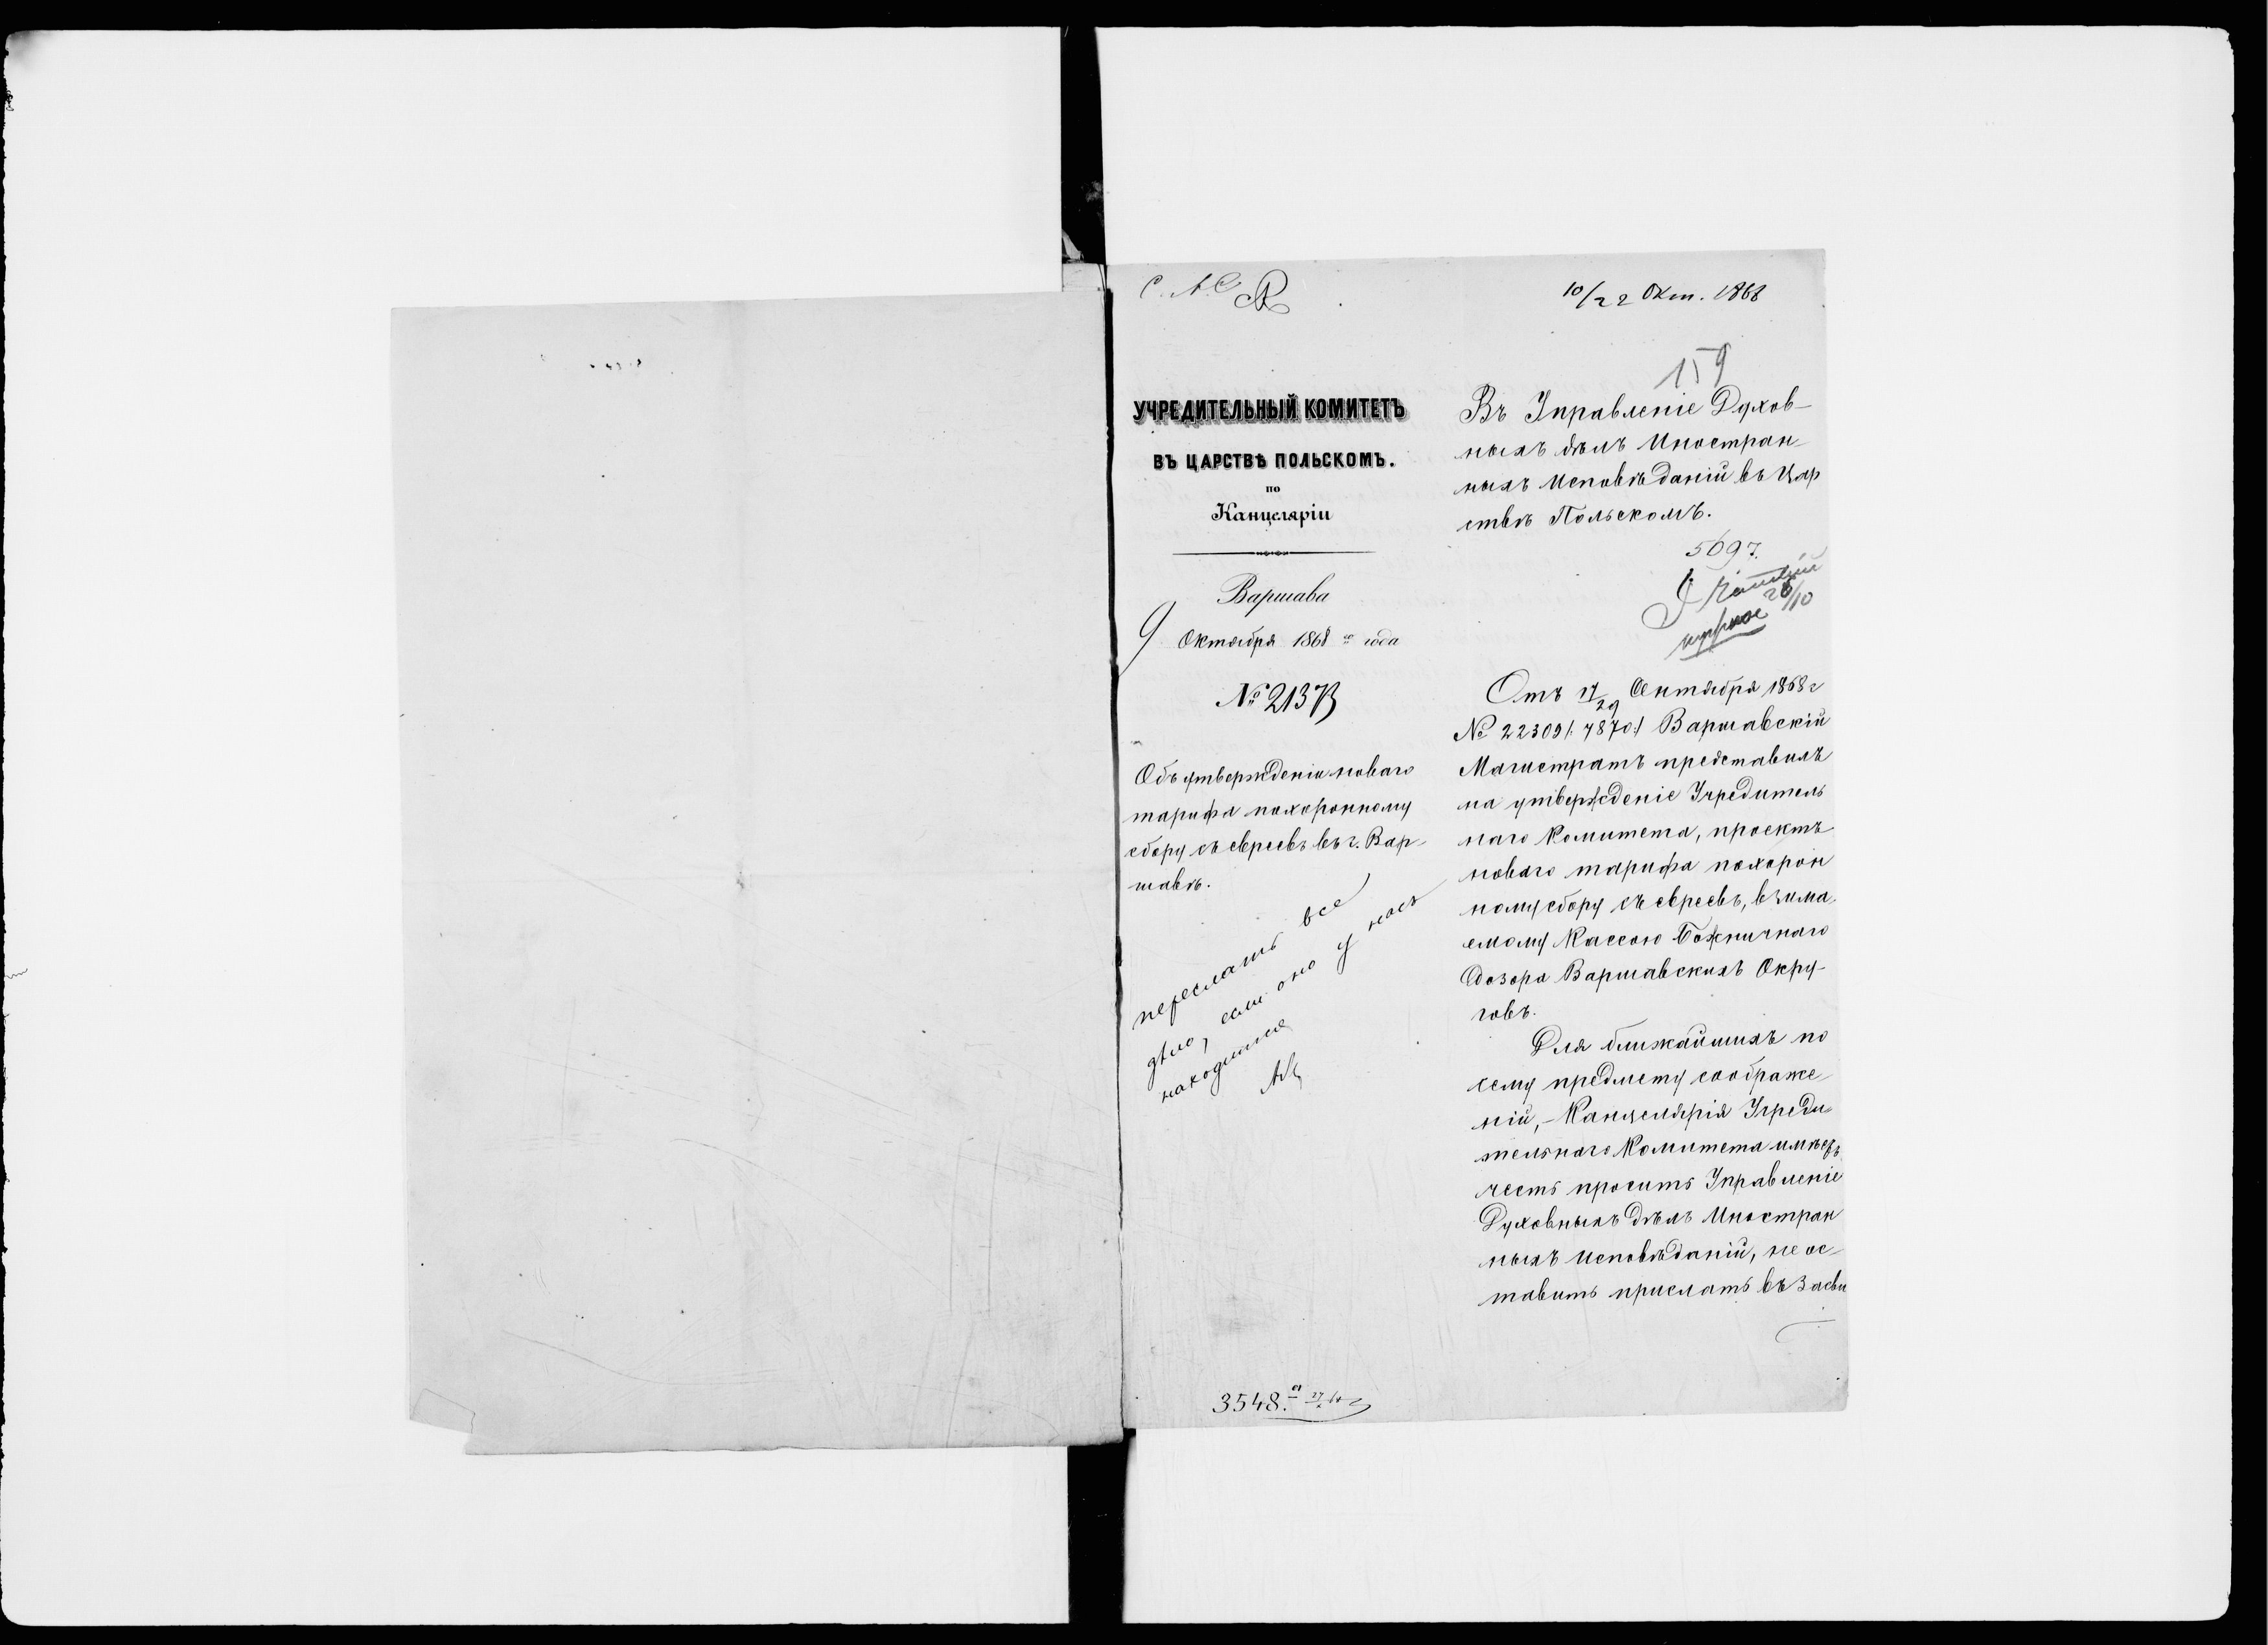 10/22 Окт. 1868
159
УЧРЕДИТЕЛЬНЫЙ КОМИТЕТЪ
ВЪ ЦАРСТВѢ ПОЛЬСКОМЪ.
по
Канцеляріи
Варшава
9 Октября 1868 го года
№ 21373
Объ утвержденіи новаго
тарифа похоронному
сбору съ евреевъ въ г. Вар-
шавѣ.
переслать все
дѣло, если оно у насъ
находится
3548.
Въ Управленіе Духов-
ныхъ дѣлъ Иностран-
ныхъ Исповѣданій въ Цар
ствѣ Польскомъ.
5097.
28/10
Отъ 17/29 Сентября 1868 г
№ 22309/:7870:/ Варшавскій
Магистратъ представилъ
на утвержденіе Учредитель
наго Комитета, проектъ
новаго тарифа похорон
ному сбору съ евреевъ, взима
емому Кассою Божничнаго
Дозора Варшавскихъ Окру-
говъ.
Для ближайшихъ по
сему предмету соображе
ній, - Канцелярія Учреди-
тельнаго Комитета имѣетъ
честь просить Управленіе
Духовныхъ дѣлъ Иностран
ныхъ Исповѣданій, не ос-
тавить прислать въ Засви